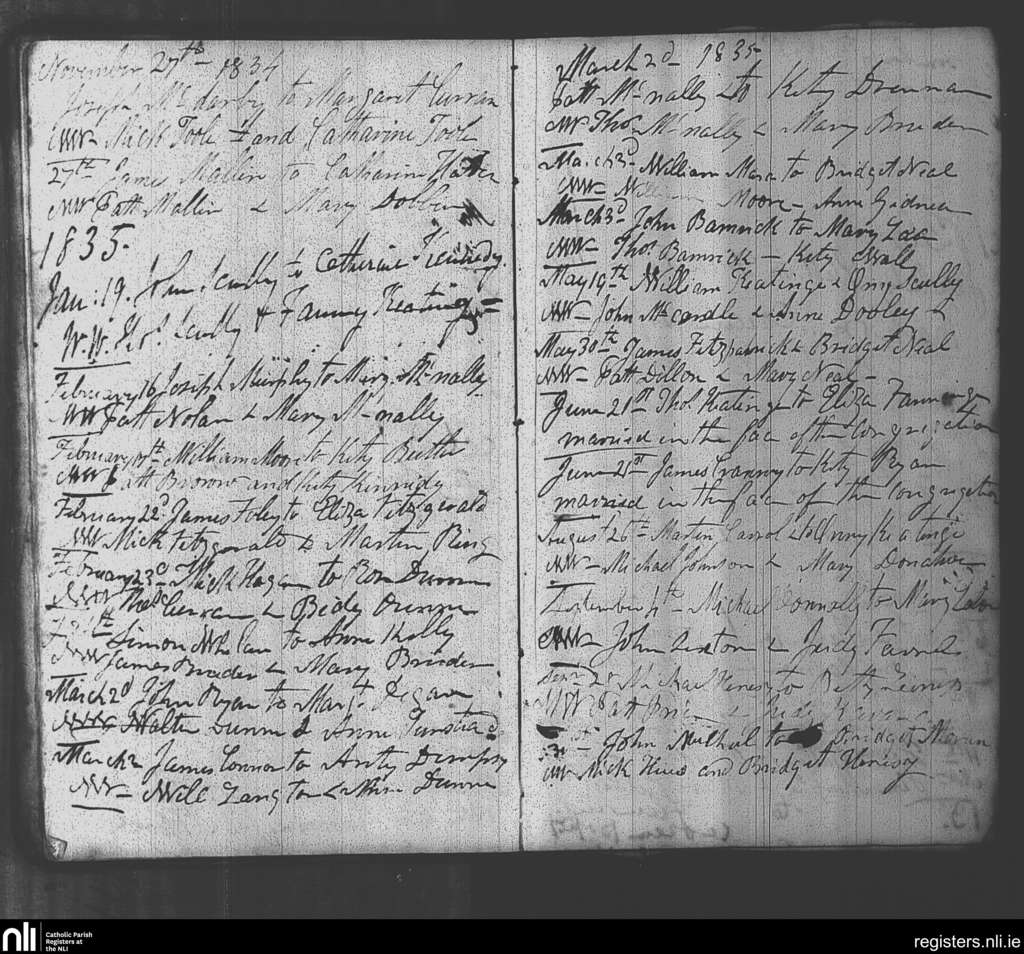 November 27th 1834
Joseph Mc darby to Margaret Curran
WW Mich Toole and Catharine Toole
27th James Mallin to Catharin
WW Patt Mallin & Mary Dobbin
1835.
Jan: 19. John Scully to Catherine Kennedy.
W.W. Thos. Scully & Fanny Keating
February 16 Joseph Murphy to Marg. Mc nally
WW Patt Nolan & Mary Mc nally
February William Moore to Kity Butler
WW Patt and Kity Kennedy
February 22d James Foley to Eliza Fitzgerald
WW Mick Fitzgerald & Martin Ring
February 23d Mick Hagan to Rose Dunne
WW Thos Curran & Bidy Dunne
Simon Whelan to Anne Kelly
WW James Brieder & Mary Brieder
March 2d John Ryan to Mart. Degan
WW Walter Dunne & Anne
March 2 James Connor to Anty Dempsy
WW Will Langton & Anne Dunne
March 2d 1835
Patt Mc nally to Kity Drennan
WW Thos Mc nally & Mary Brieder
March 3d William Mara to Bridget Neal
WW Moore Anne Gidnea
March 3d John Bamrick to Mary Lee
WW Thos Bamrick Kity Wall
May 19th William Keatinge & Onny Scully
WW John Mc cardle & Anne Dooley
May 30th James Fitzpatrick & Bridget Neal
WW Patt Dillon & Mary Neal
June 21st Thos Keatinge to Eliza Fannings
married in the face of the congregation
June 21st James Crannoy to Kity Ryan
married in the face of the congregation
August 26th Martin Carrol to Onny Keatinge
WW Michael Johnson & Mary Donahue
September 4th Michael Donnolly to Mary Lalor
WW John Sexton & Judy Farrel
Michael to Betty
WW Patt
John Mulhal to Bridget Moran
WW Mick Hews and Bridget Henesy
nli
Catholic Parish
Registers at
the NLI
registers.nli.ie